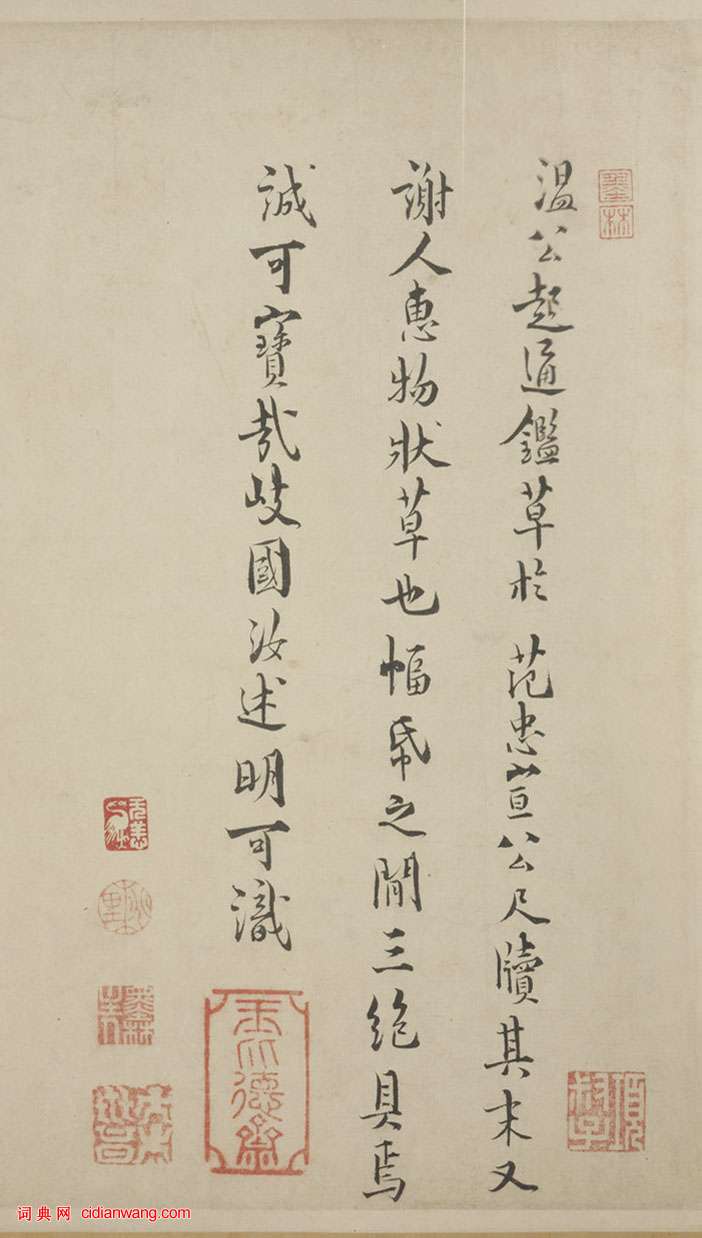 溫公起通鑑草於范忠宣公尺牘其末又
謝人惠物狀草也幅帋之間三絶具焉
誠可寶哉岐國汝述明可識
墨林
項子京
玉德齋
词典网 cidianwang.com